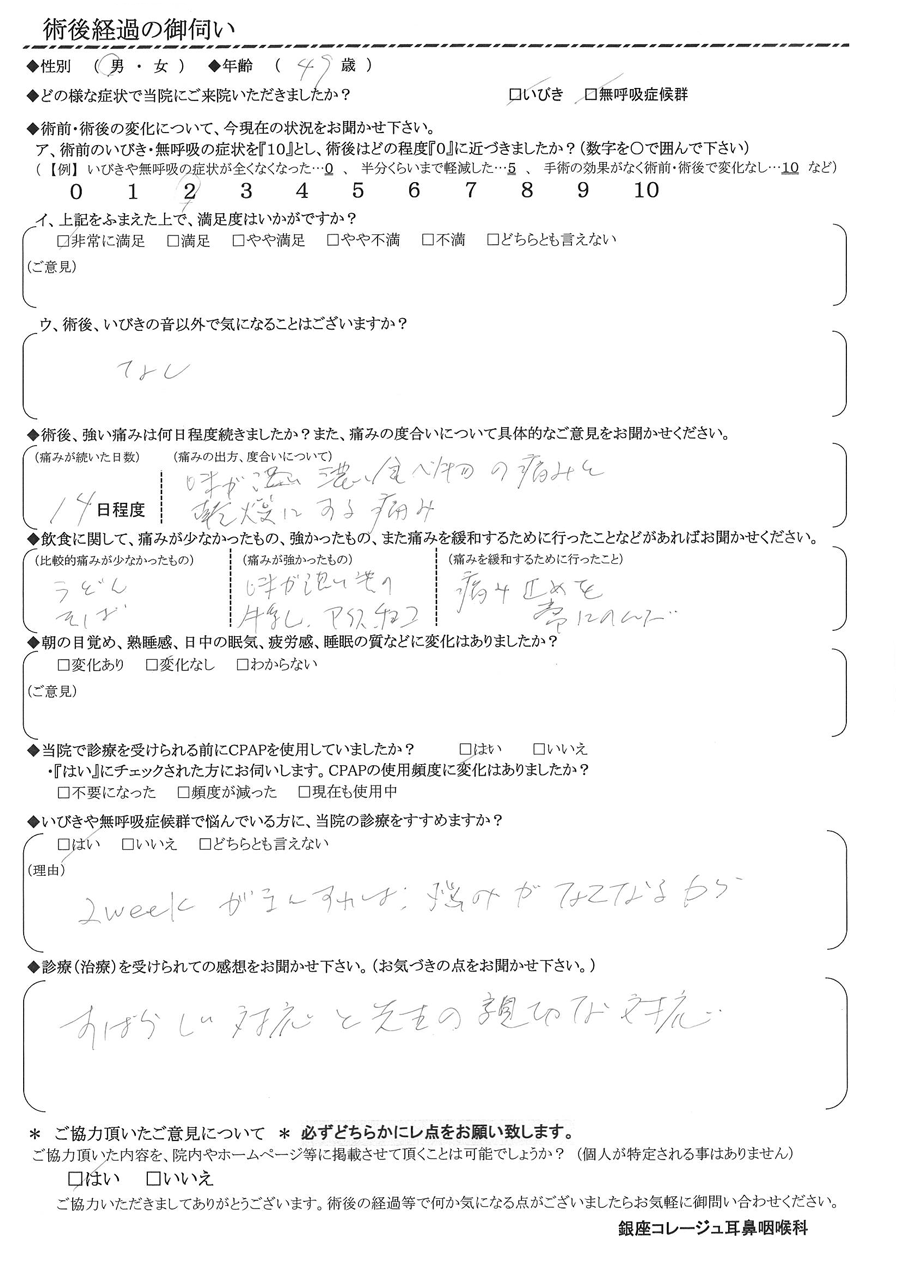 術後経過の御伺い
◆性別 （ 男 ・ 女 ） ◆年齢 （ 49 歳 ）
◆どの様な症状で当院にご来院いただきましたか？ □いびき □無呼吸症候群
◆術前・術後の変化について、今現在の状況をお聞かせ下さい。
ア、術前のいびき・無呼吸の症状を『10』とし、術後はどの程度『0』に近づきましたか？（数字を〇で囲んで下さい）
（【例】 いびきや無呼吸の症状が全くなくなった…0 、 半分くらいまで軽減した…5 、 手術の効果がなく術前・術後で変化なし…10 など）
0 1 2 3 4 5 6 7 8 9 10
イ、上記をふまえた上で、満足度はいかがですか？
□非常に満足 □満足 □やや満足 □やや不満 □不満 □どちらとも言えない
（ご意見）
ウ、術後、いびきの音以外で気になることはございますか？
なし
◆術後、強い痛みは何日程度続きましたか？また、痛みの度合いについて具体的なご意見をお聞かせください。
（痛みが続いた日数） （痛みの出方、度合いについて）
味が 濃い食べ物の痛みと
14 日程度 乾燥にする痛み
◆飲食に関して、痛みが少なかったもの、強かったもの、また痛みを緩和するために行ったことなどがあればお聞かせください。
（比較的痛みが少なかったもの） （痛みが強かったもの） （痛みを緩和するために行ったこと）
うどん 味が濃いもの 痛み止めを
そば アイス、チョコ 常にのんだ
◆朝の目覚め、熟睡感、日中の眠気、疲労感、睡眠の質などに変化はありましたか？
□変化あり □変化なし □わからない
（ご意見）
◆当院で診療を受けられる前にCPAPを使用していましたか？ □はい □いいえ
・『はい』にチェックされた方にお伺いします。CPAPの使用頻度に変化はありましたか？
□不要になった □頻度が減った □現在も使用中
◆いびきや無呼吸症候群で悩んでいる方に、当院の診療をすすめますか？
□はい □いいえ □どちらとも言えない
（理由）
2week がまんすれば、悩みがなくなるから
◆診療（治療）を受けられての感想をお聞かせ下さい。（お気づきの点をお聞かせ下さい。）
すばらしい対応と先生の親切な対応
＊ ご協力頂いたご意見について ＊ 必ずどちらかにレ点をお願い致します。
ご協力頂いた内容を、院内やホームページ等に掲載させて頂くことは可能でしょうか？ （個人が特定される事はありません）
□はい □いいえ
ご協力いただきましてありがとうございます。術後の経過等で何か気になる点がございましたらお気軽に御問い合わせください。
銀座コレージュ耳鼻咽喉科